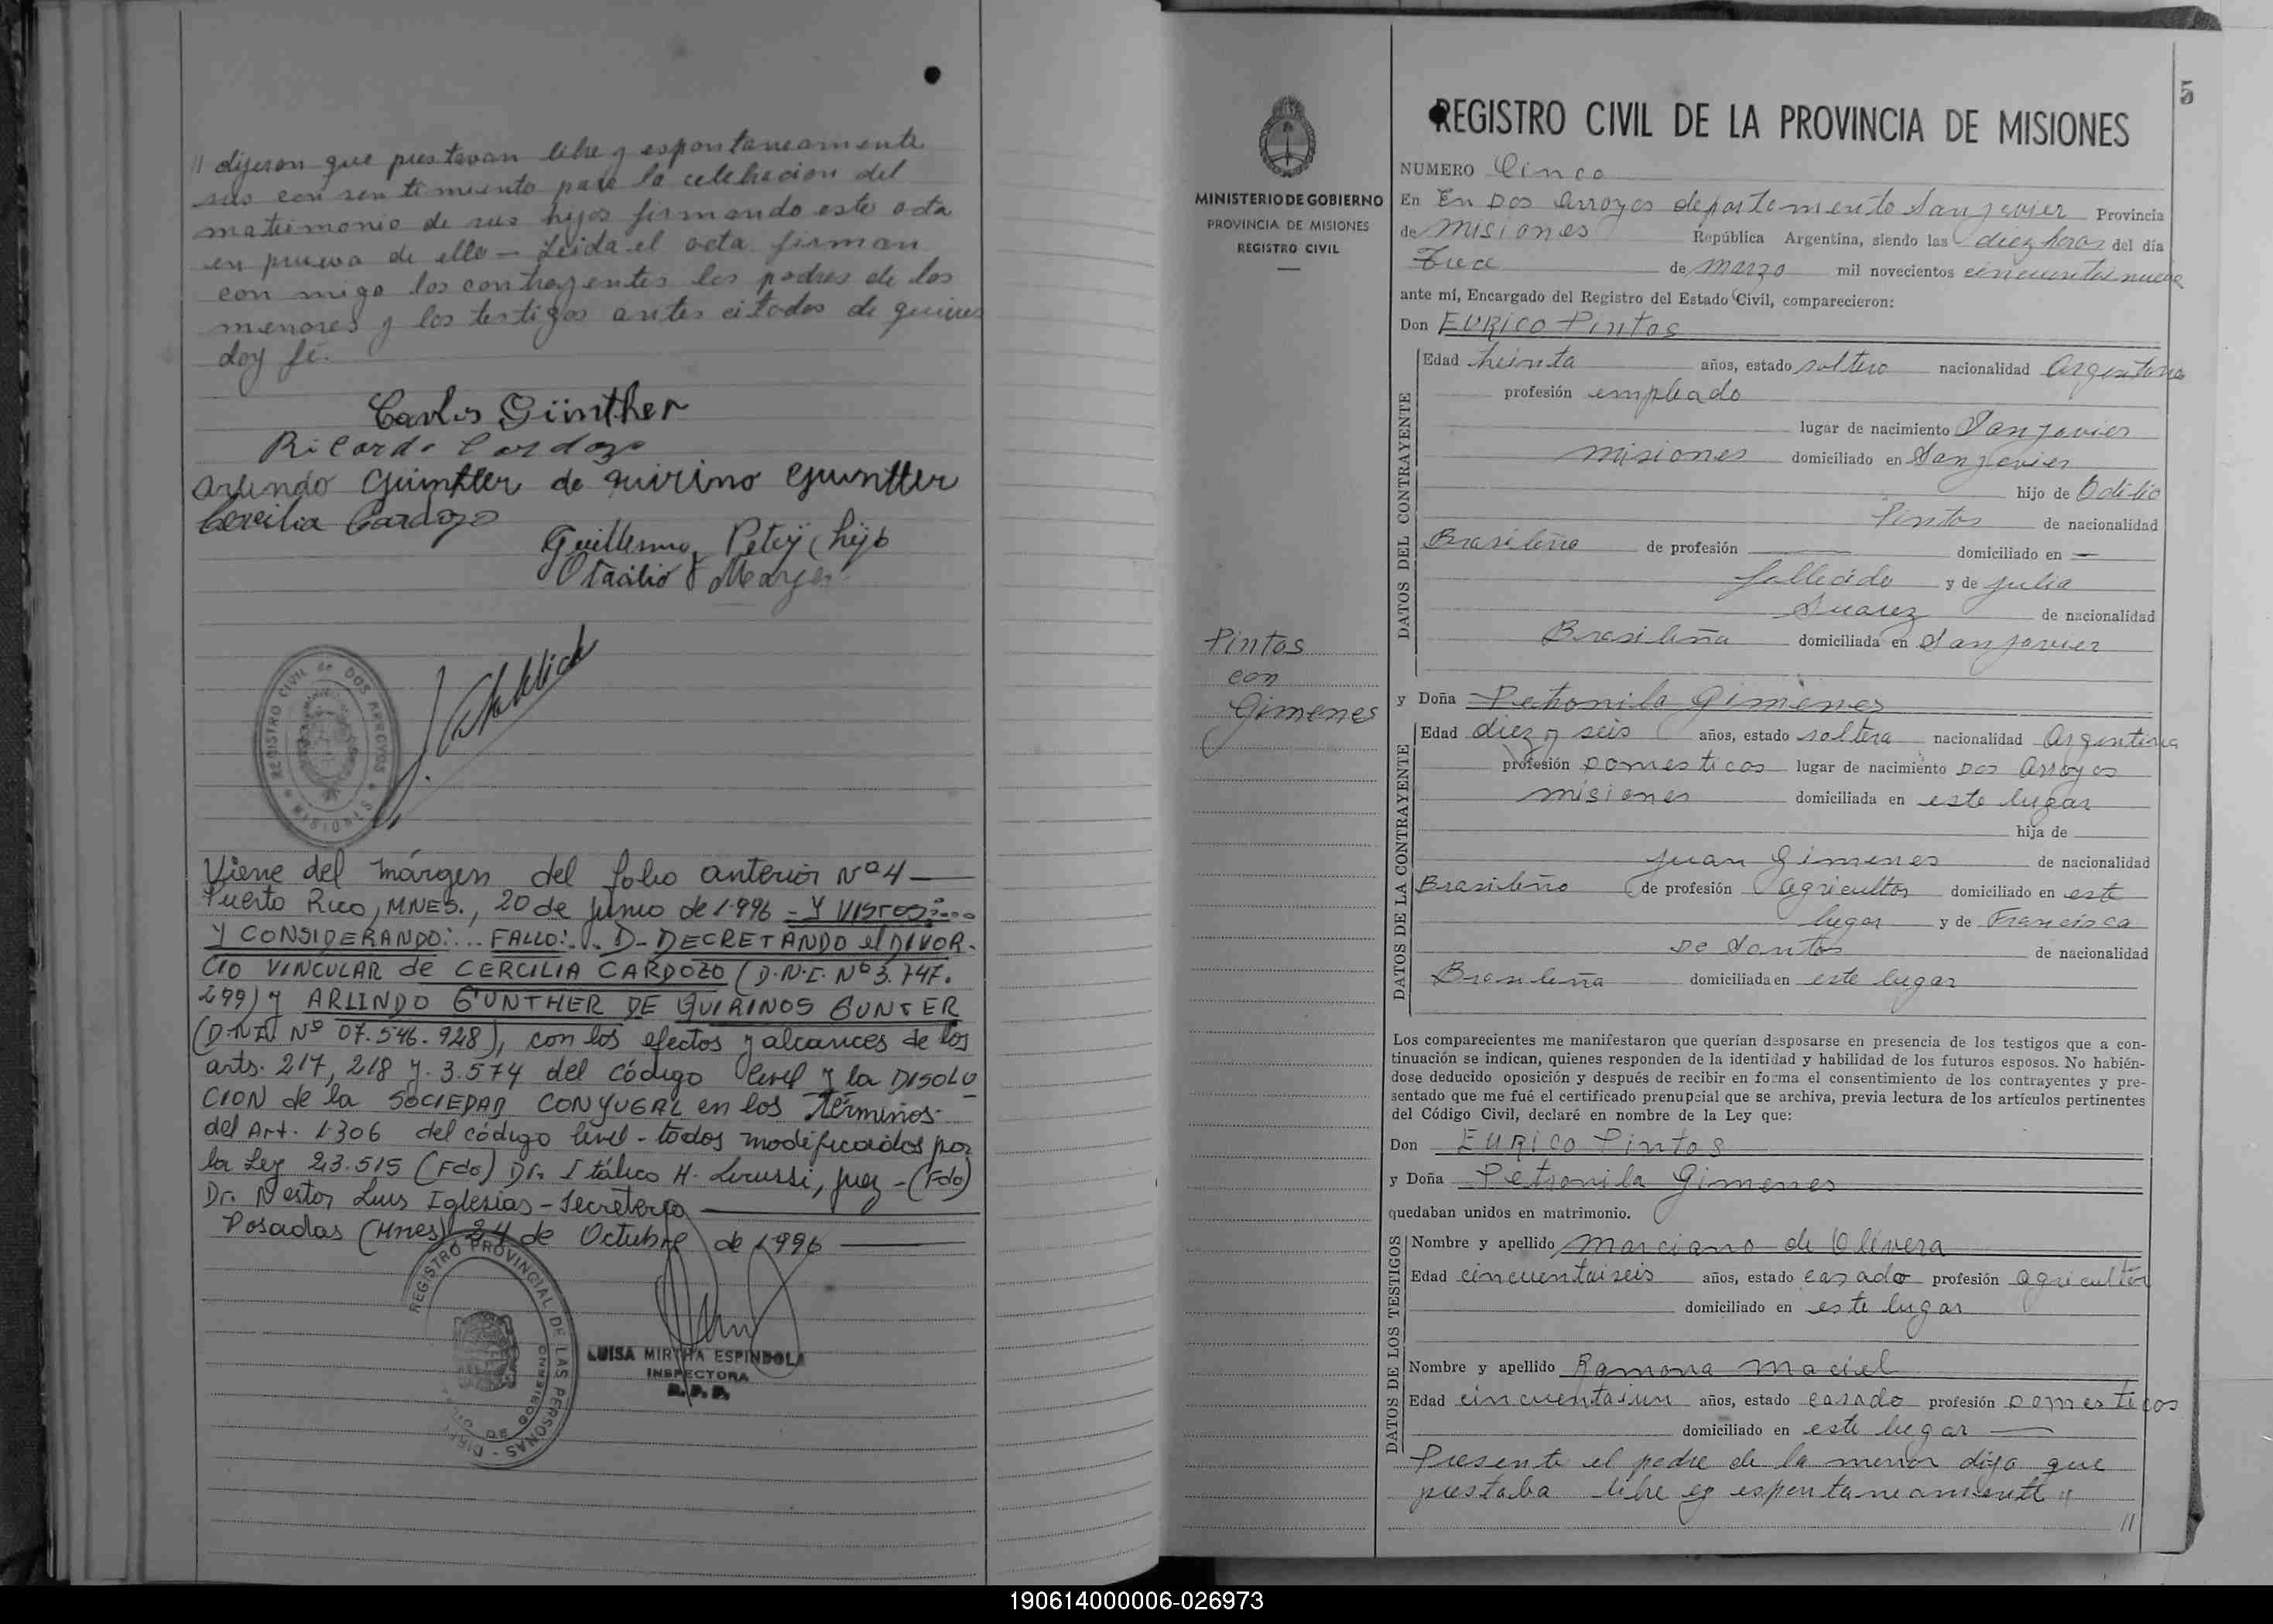 // dijeron que prestavan libre y espontaneamente
sus con sen timiento para la celebracion del
matrimonio de sus hijos firmando este acta
en prueva de ello — Leida el acta firman
con migo los contrayentes los padres de los
menores y los testigos antes citados de quienes
doy fé.
Carlos Günther
Ricardo Cardozo
Arlindo Günther de Quirino Guntter
Cercilia Cardozo
Guillermo Petiÿ (hijo
Otacilio
REGISTRO CIVIL de DOS ARROYOS
MISIONES
Viene del márgen del folio anterior Nº 4 —
Puerto Rico, MNES., 20 de Junio de 1996 - Y VISTOS:...
Y CONSIDERANDO: ... FALLO: .. D- DECRETANDO el DIVOR-
CIO VINCULAR de CERCILIA CARDOZO (D.N.I. Nº 3.747.
299) y ARLINDO GUNTHER DE QUIRINOS GUNTER
(D.N.I. Nº 07.546.928), con los efectos y alcances de los
arts. 217, 218 y 3.574 del código Civil y la DISOLU
CION de la SOCIEDAD CONYUGAL en los términos
del Art. 1306 del código Civil - todos modificados por
la Ley 23.515 (Fdo) Dr. Itálico H. Lerussi, Juez - (Fdo)
Dr. Nestor Luis Iglesias - Secretario
Posadas (Mnes) 24 de Octubre de 1996
REGISTRO PROVINCIAL DE LAS PERSONAS
LUISA MIRTHA ESPINDOLA
INSPECTORA
R. P. P.
5
REGISTRO CIVIL DE LA PROVINCIA DE MISIONES
MINISTERIO DE GOBIERNO
PROVINCIA DE MISIONES
REGISTRO CIVIL
Pintos
con
Gimenes
NUMERO Cinco
En En Dos Arroyos departamento San Javier Provincia
de Misiones República Argentina, siendo las diez horas del día
Trece de Marzo mil novecientos cincuenta nueve
ante mí, Encargado del Registro del Estado Civil, comparecieron:
Don EURICO Pintos
DATOS DEL CONTRAYENTE
Edad treinta años, estado soltero nacionalidad Argentina
profesión empleado
lugar de nacimiento San Javier
Misiones domiciliado en San Javier
hijo de Odilio
Pintos de nacionalidad
Brasileño de profesión domiciliado en —
fallecido y de Julia
Suarez de nacionalidad
Brasileña domiciliada en San Javier
y Doña Petronila Gimenes
DATOS DE LA CONTRAYENTE
Edad diez y seis años, estado soltera nacionalidad Argentina
profesión Domesticos lugar de nacimiento Dos Arroyos
Misiones domiciliada en este lugar
hija de
Juan Gimenes de nacionalidad
Brasileño de profesión Agricultor domiciliado en este
lugar y de Francisca
De Santos de nacionalidad
Brasileña domiciliada en este lugar
Los comparecientes me manifestaron que querían desposarse en presencia de los testigos que a con-
tinuación se indican, quienes responden de la identidad y habilidad de los futuros esposos. No habién-
dose deducido oposición y después de recibir en forma el consentimiento de los contrayentes y pre-
sentado que me fué el certificado prenupcial que se archiva, previa lectura de los artículos pertinentes
del Código Civil, declaré en nombre de la Ley que:
Don EURICO Pintos
y Doña Petronila Gimenes
quedaban unidos en matrimonio.
DATOS DE LOS TESTIGOS
Nombre y apellido Marciano de Olivera
Edad cincuentaiseis años, estado casado profesión agricultor
domiciliado en este lugar
Nombre y apellido Ramona Maciel
Edad cincuentaiun años, estado casado profesión Domesticos
domiciliado en este lugar
Presente el padre de la menor dijo que
prestaba libre y espontaneamente //
//
190614000006-026973